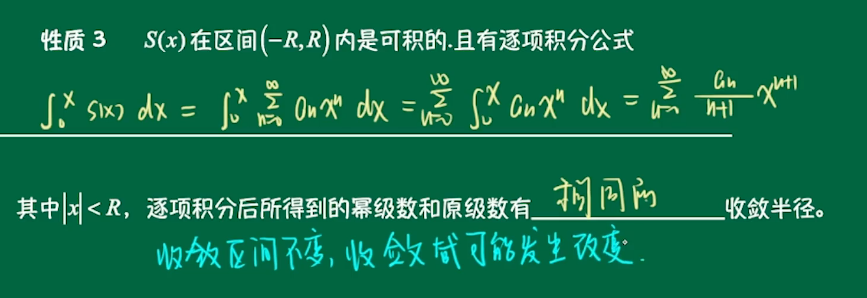 性质 3 S(x)在区间(-R,R)内是可积的.且有逐项积分公式
∫₀ˣ S(x) dx = ∫₀ˣ ∑ₙ₌₀^∞ aₙxⁿ dx = ∑ₙ₌₀^∞ ∫₀ˣ aₙxⁿ dx = ∑ₙ₌₀^∞ aₙ/(n+1) xⁿ⁺¹
其中|x|<R，逐项积分后所得到的幂级数和原级数有 相同的 收敛半径。
收敛区间不变，收敛域可能发生改变.